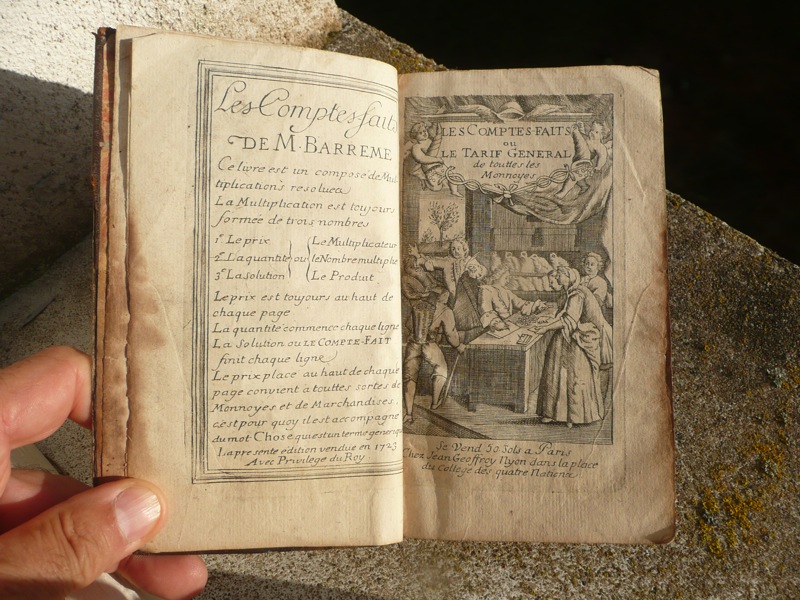 Les Comptes faits
DE M. BARREME
Ce livre est un composé de Mul
tiplications resolues
La Multiplication est toujours
formée de trois nombres
1º Le prix
2º La quantité
3º La Solution
ou
Le Multiplicateur
le Nombre multiplié
Le Produit
Le prix est toujours au haut de
chaque page
La quantité commence chaque ligne
La Solution ou LE COMPTE-FAIT
finit chaque ligne
Le prix placé au haut de chaque
page convient a touttes sortes de
Monnoyes et de Marchandises.
c'est pour quoy il est accompagné
du mot Chose qui est un terme generique
La presente edition vendue en 1723
Avec Privilege du Roy
LES COMPTES-FAITS
ou
LE TARIF GENERAL
de touttes les
Monnoyes
Se Vend 50 Sols a Paris
Chez Jean Geoffroy Nyon dans la place
du College des quatre Nations